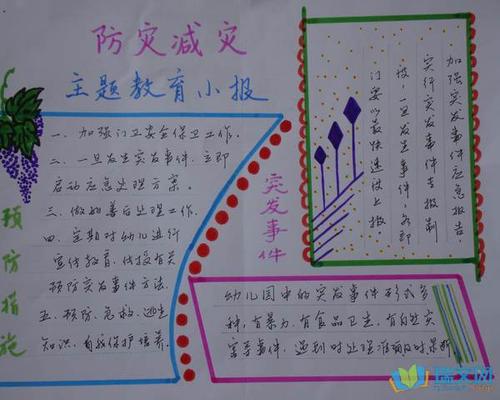 防灾减灾
主题教育小报
预防措施
一、加强门卫安全保卫工作。
二、一旦发生突发事件，立即
启动应急处理方案。
三、做好善后处理工作。
四、定期对幼儿进行
宣传教育，传授有关
预防突发事件方法。
五、预防、急救、逃生
知识，自我保护培养。
突发事件
加强突发事件应急报告，
实行突发事件专报制
度，一旦发生事件，各部
门要以最快速度上报。
幼儿园中的突发事件形式多
种，有暴力、有食品卫生、有自然灾
害等事件，遇到时处理准确及时果断